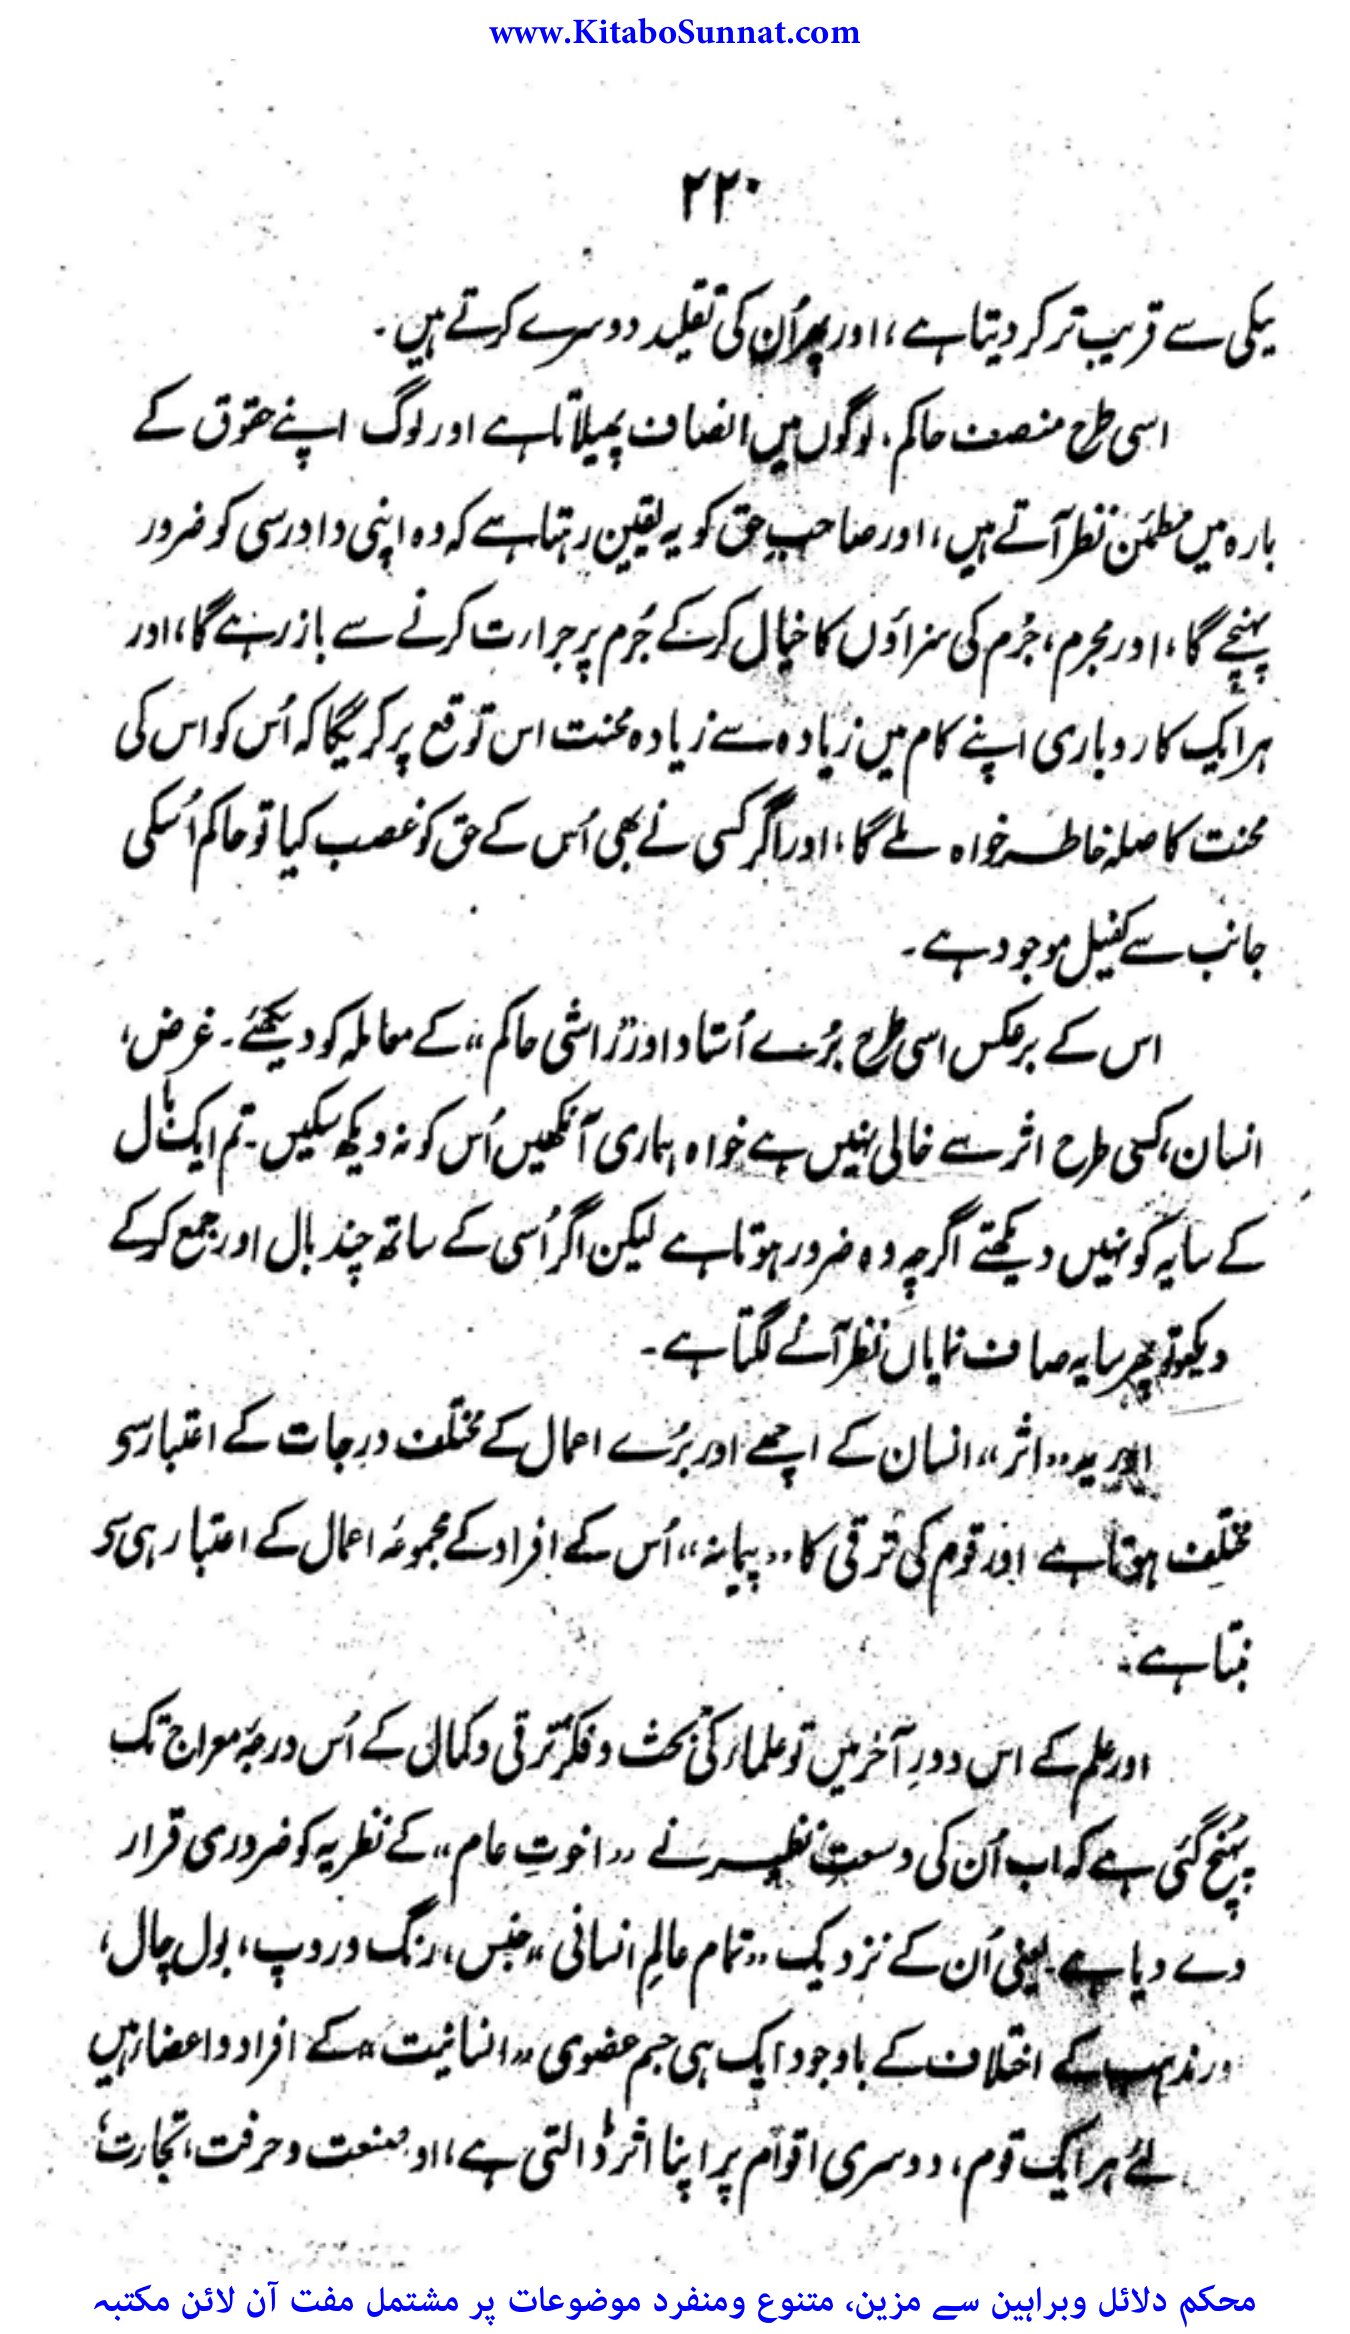 www.KitaboSunnat.com
۲۲۰
نیکی سے قریب تر کر دیتا ہے، اور پھر اُن کی تقلید دوسرے کرتے ہیں۔
اسی طرح منصف حاکم، لوگوں میں انصاف پھیلاتا ہے اور لوگ اپنے حقوق کے
بارہ میں مطمئن نظر آتے ہیں، اور صاحبِ حق کو یہ یقین رہتا ہے کہ وہ اپنی دادرسی کو ضرور
پہنچے گا، اور مجرم، جُرم کی سزاؤں کا خیال کر کے جُرم پر جرارت کرنے سے باز رہے گا، اور
ہر ایک کاروباری اپنے کام میں زیادہ سے زیادہ محنت اس توقع پر کریگا کہ اُس کو اس کی
محنت کا صلہ خاطر خواہ ملے گا، اور اگر کسی نے بھی اُس کے حق کو غصب کیا تو حاکم اُسکی
جانب سے کفیل موجود ہے۔
اس کے برعکس اسی طرح بُرے اُستاد اور "راشی حاکم" کے معاملہ کو دیکھئے۔ غرض،
انسان، کسی طرح اثر سے خالی نہیں ہے خواہ ہماری آنکھیں اُس کو نہ دیکھ سکیں۔ تم ایک بال
کے سایہ کو نہیں دیکھتے اگرچہ وہ ضرور ہوتا ہے لیکن اگر اُسی کے ساتھ چند بال اور جمع کر کے
دیکھو تو پھر سایہ صاف نمایاں نظر آنے لگتا ہے۔
اور یہ "اثر" انسان کے اچھے اور بُرے اعمال کے مختلف درجات کے اعتبار سے
مختلف ہوتا ہے اور قوم کی ترقی کا "پیمانہ" اُس کے افراد کے مجموعۂ اعمال کے اعتبار ہی سے
بنتا ہے۔
اور علم کے اس دورِ آخر میں تو علمار کی بحث و فکر ترقی و کمال کے اُس درجۂ معراج تک
پہُنچ گئی ہے کہ اب اُن کی وسعتِ نظر نے "اخوتِ عام" کے نظریہ کو ضروری قرار
دے دیا ہے۔ یعنی اُن کے نزدیک "تمام عالمِ انسانی" جنس، رنگ و روپ، بول چال،
ور مذہب کے اختلاف کے باوجود ایک ہی جسم عضوی "انسانیت" کے افراد و اعضار ہیں
لئے ہر ایک قوم، دوسری اقوام پر اپنا اثر ڈالتی ہے، اور صنعت و حرفت، تجارت،
محکم دلائل وبراہین سے مزین، متنوع ومنفرد موضوعات پر مشتمل مفت آن لائن مکتبہ